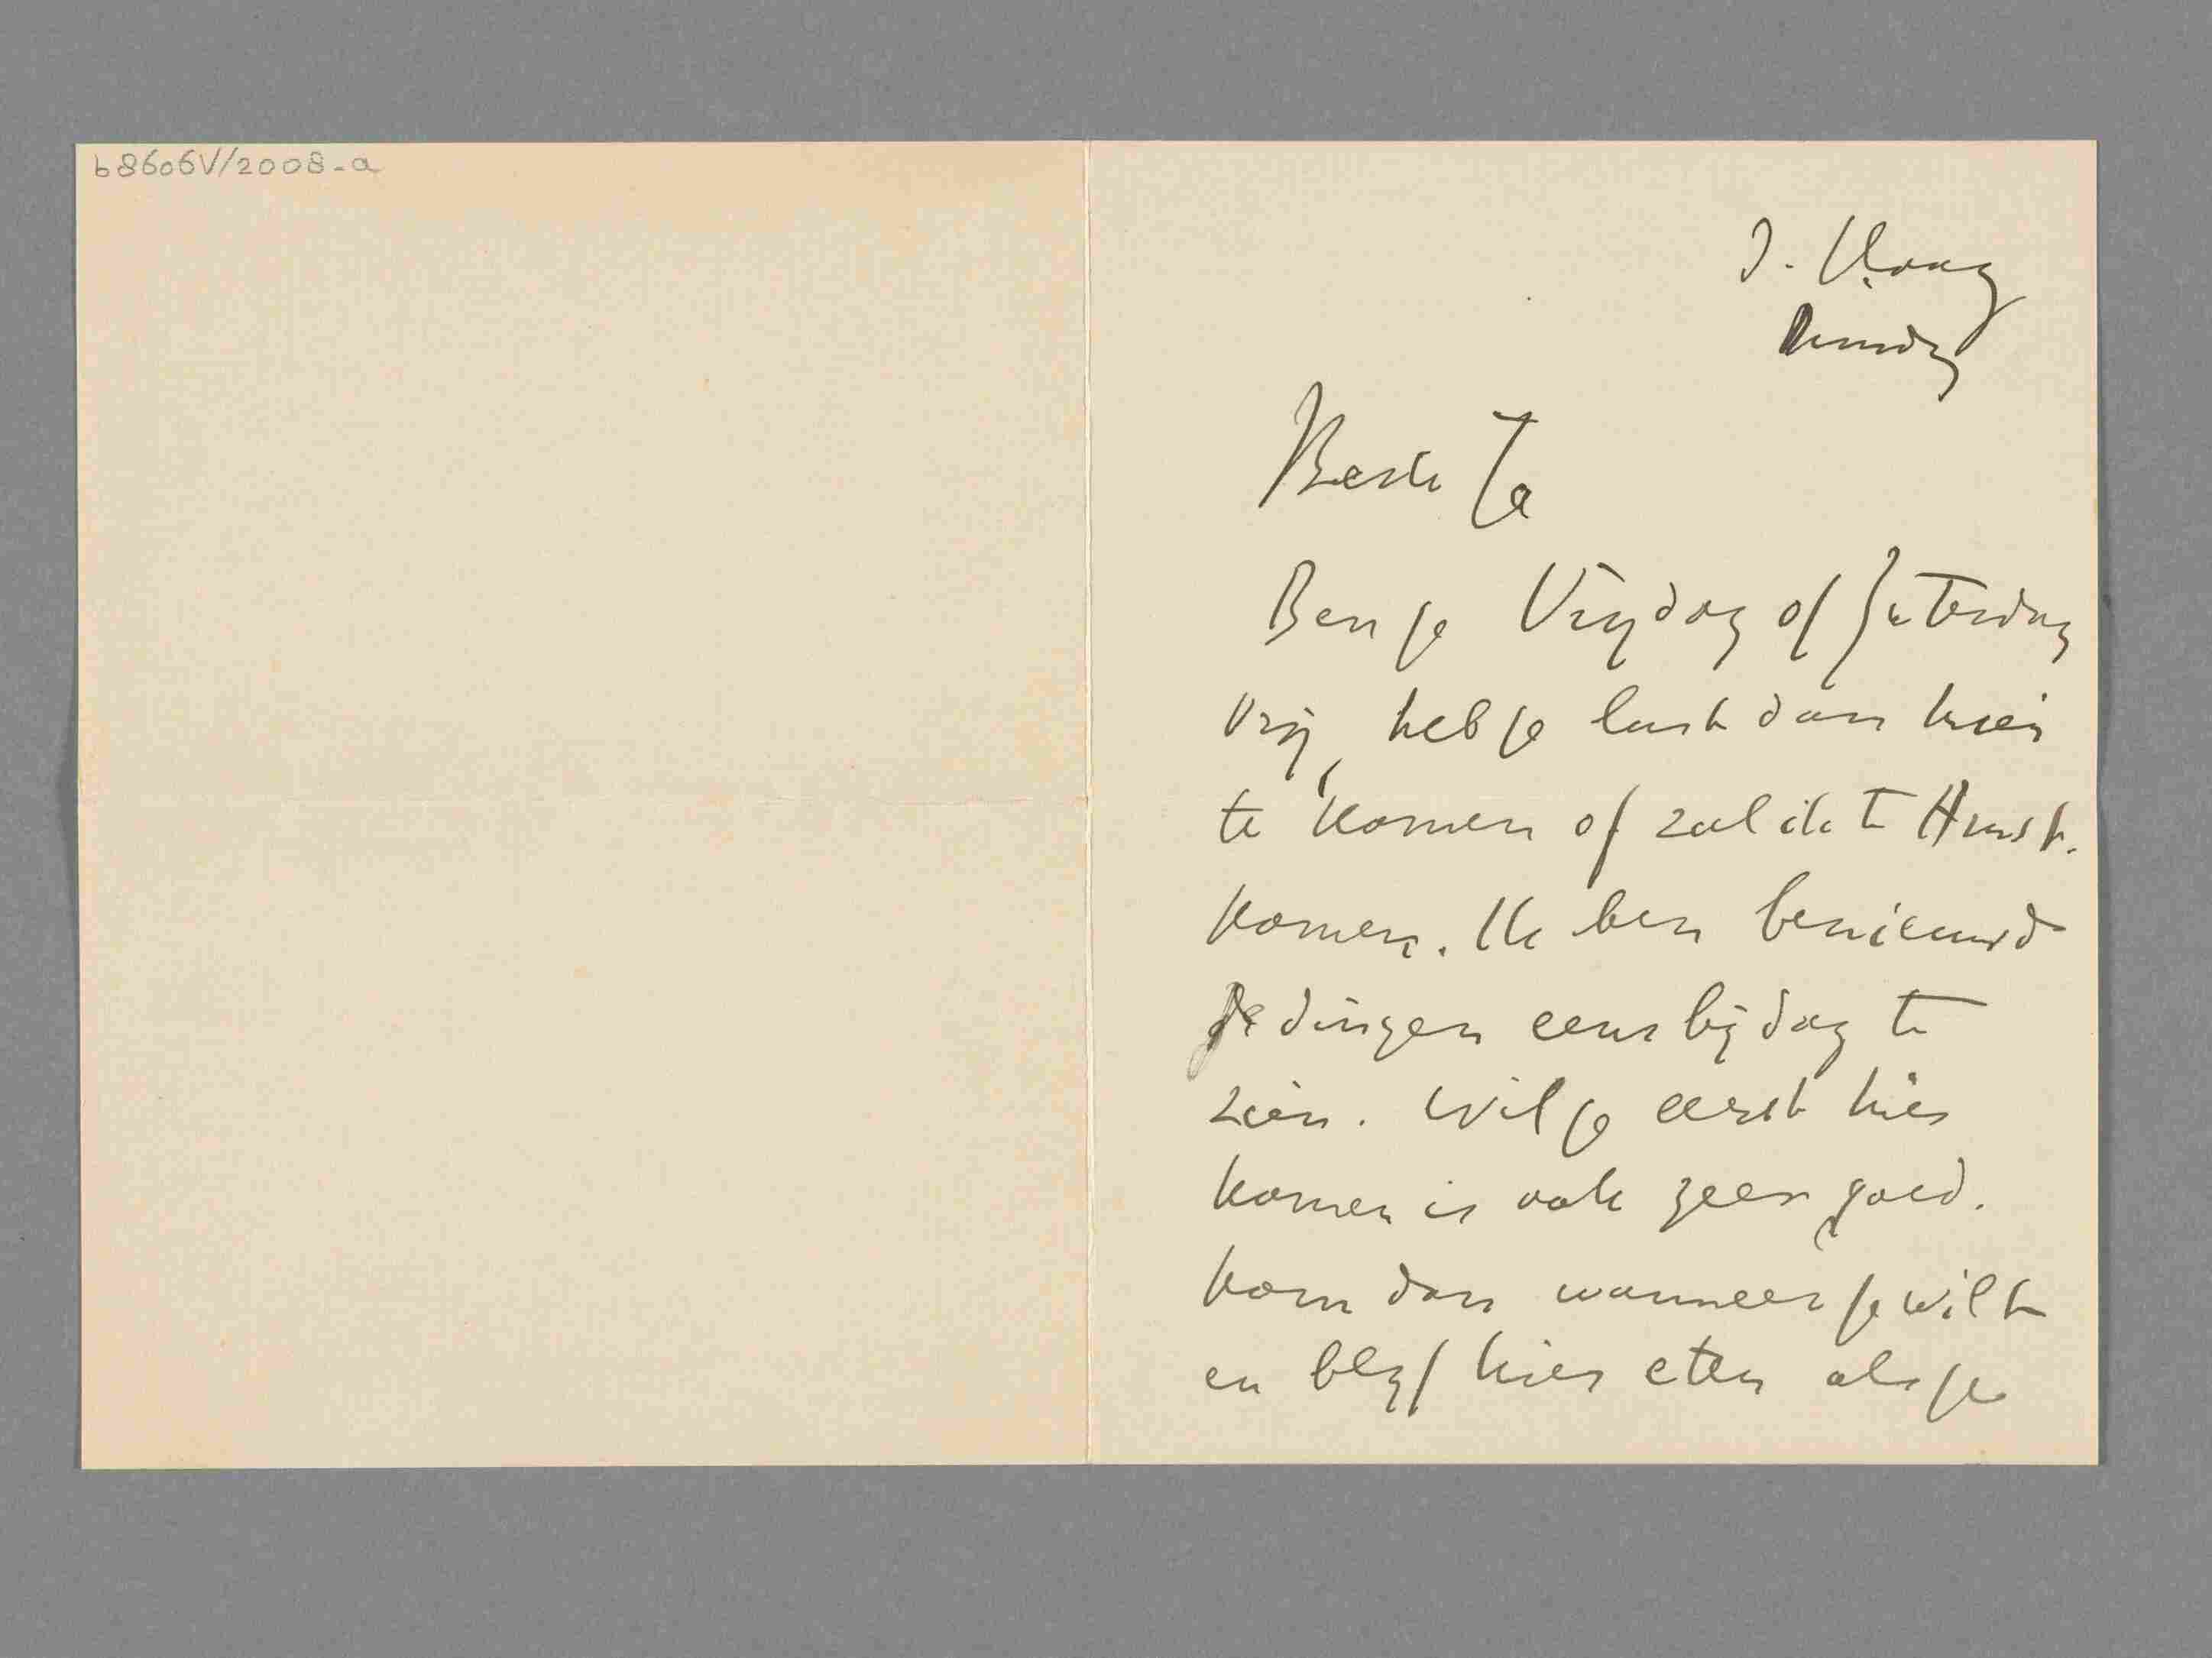 b8606V/2008-a
d. Haag
Beste Jo
Ben je Vrijdag of Zaterdag
vrij, heb je lust dan hier
te komen of zal ik te Amst.
komen. Ik ben benieuwd
de dingen eens bij dag te
zien. Wil je eerst hier
komen is ook zeer goed.
kom dan wanneer je wilt
en blijf hier eten als je